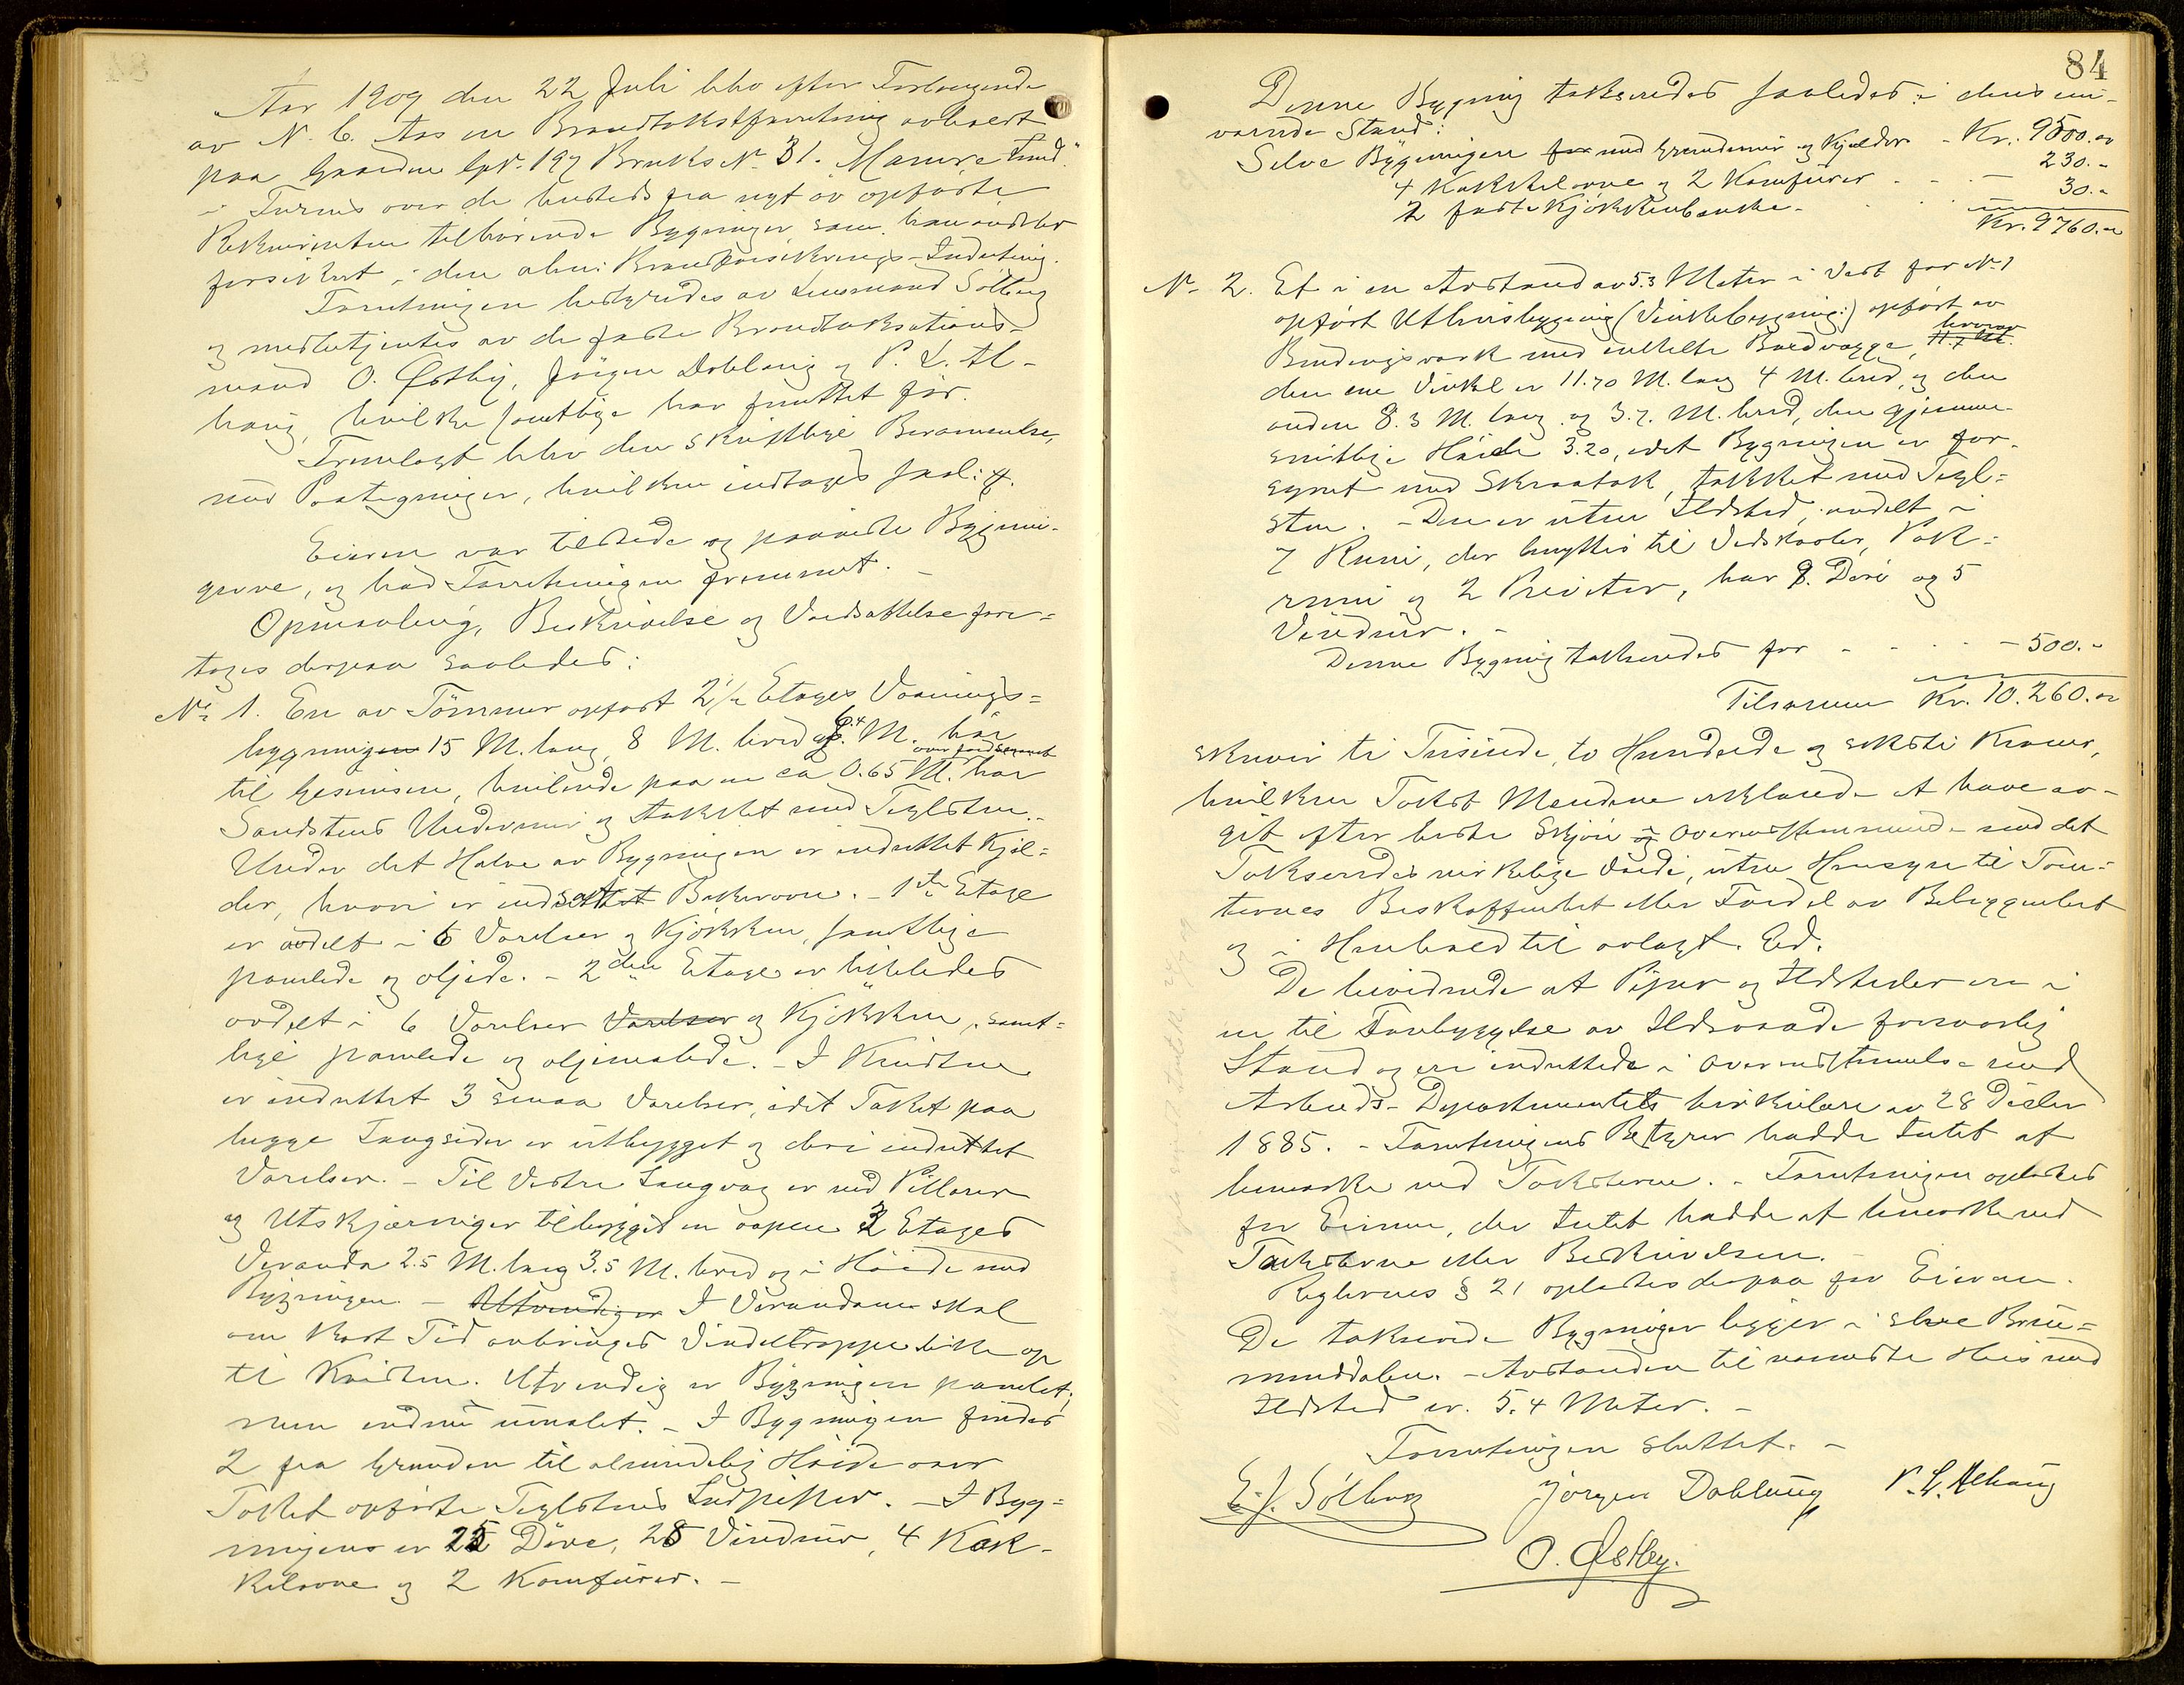 Aar 1909 den 22 Juli blev efter Forlangende
av N. C. Aas en Brandtakstforretning avholdt
paa Gaarden Gr. 197 Bruks No 31. Marure Lund"
i Furnes over de herstede fra nyt av opførte
Rekvirenten tilhørende Bygninger, som han ønsker
forsikret i den alm: Brandforsikrings-Indretning.
Forretningen bestyredes av Lensmand Sölberg
og medbetjentes av de faste Brandtaksations-
mænd O. Østby, Jörgen Doblaug og P. L. Al-
haug, hvilke samtlige har fungeret før.
Fremlagt blev den skriftlige Berammelse,
med Paategninger, hvilken indtages saal: #.
Eieren var tilstede og paaviste Bygnin-
gerne, og bad Forretningen fremmet. –
Opmaaling, Beskrivelse og Værdsættelse fore=
toges derpaa saaledes:
No 1. En av Tømmer opført 2 1/2 Etages Vaanings=
bygningen 15 M. lang, 8 M. bred og 6.4 M. høi
til Gesimsen, hvilende paa en ca 0.65 M. høi over Jordsmonnet
Sandstens Undermur og tækket med Teglsten. –
Under det Halve av Bygningen er indrettet Kjæl=
der, hvori er indsat Bakerovn. – 1ste Etage
er avdelt i 6 Værelser og Kjøkken, samtlige
panelede og oljede. – 2den Etage er likeledes
avdelt i 6 Værelser Værelser og Kjøkken, samt=
lige panelede og oljemalede. – I Kvisten
er indrettet 3 smaa Værelser, idet Taket paa
begge Langsider er utbygget og deri indrettet
Værelser. – Til Vestre Langvæg er med Pillarer
og Utskjæringer tilbygget en aapen 2 Etages
Veranda 2.5 M. lang 3.5 M. bred og i Høide med
Bygningen. – Utvendig er I Verandaen skal
om kort Tid anbringes Vindeltrappe like op
til Kvisten. Utvendig er Bygningen panelet,
men endnu umalet. – I Bygningen findes
2 fra Grunden til almindelig Høide over
Taket opførte Teglstens Ludpiper. – I Byg=
ningens er 25 Døre, 28 Vinduer, 4 Kak-
kelovne og 2 Komfurer. –
84
Denne Bygning takseredes saaledes i dens nu-
værende Stand:
Selve Bygningen for med Grundmur og Kjælder - Kr. 9500.00
4 Kakkelovne og 2 Komfurer - - - 230.-
2 faste Kjøkkenbænke - - - 30.-
Kr. 9760.00
No 2. Et i en Avstand av 5.3 Meter i Vest for No 1
opført Uthusbygning (Vinkelbygning:) opført av
Bindingsverk med enkelte Bordvægge, hvorav
den ene Vinkel er 11.70 M. lang 4 M. bred, og den
anden 8.3 M. lang og 3.7. M. bred, den gjennem-
snitlige Høide 3.20, idet Bygningen er for-
synet med Skraatak, tækket med Tegl=
sten. – Den er uten Ildsted, avdelt i
7 Rum, der benyttes til Vedskaaler, Pak=
rum og 2 Priveter, har 8. Døre og 5
Vinduer. –
Denne Bygning takseredes for - - - - 500.-
Tilsammen Kr. 10.260.00
skriver ti Tusinde, to Hundrede og seksti Kroner,
hvilken Takst Mændene erklærede at have av-
git efter bedste Skjøn og Overensstemmende med det
Takseredes virkelige Værdi, uten Hensyn til Tom=
ternes Beskaffenhet eller Fordel av Beliggenhet
og i Henhold til avlagt. Ed.
De bevidnede at Piper og Ildsteder ere i
en til Forebyggelse av Ildsvaade forsvarlig
Stand og ere indrettede i Overensstemmelse med
Arbeids-Departementets Cirkulære av 28 Decbr
1885. – Forretningens Bestyrer hadde Intet at
bemærke ved Taksterne. – Forretningen oplæstes
for Eieren, der Intet hadde at bemærke ved
Taksterne eller Beskrivelsen. –
Reglernes § 21 oplæstes derpaa for Eieren.
De takserede Bygninger ligger i selve Brum=
unddalen. – Avstanden til nærmeste Hus med
Ildsted er 5.4 Meter. –
Forretningen sluttet. –
E. J. Sölberg Jörgen Doblaug P. L. Alhaug
O. Østby.